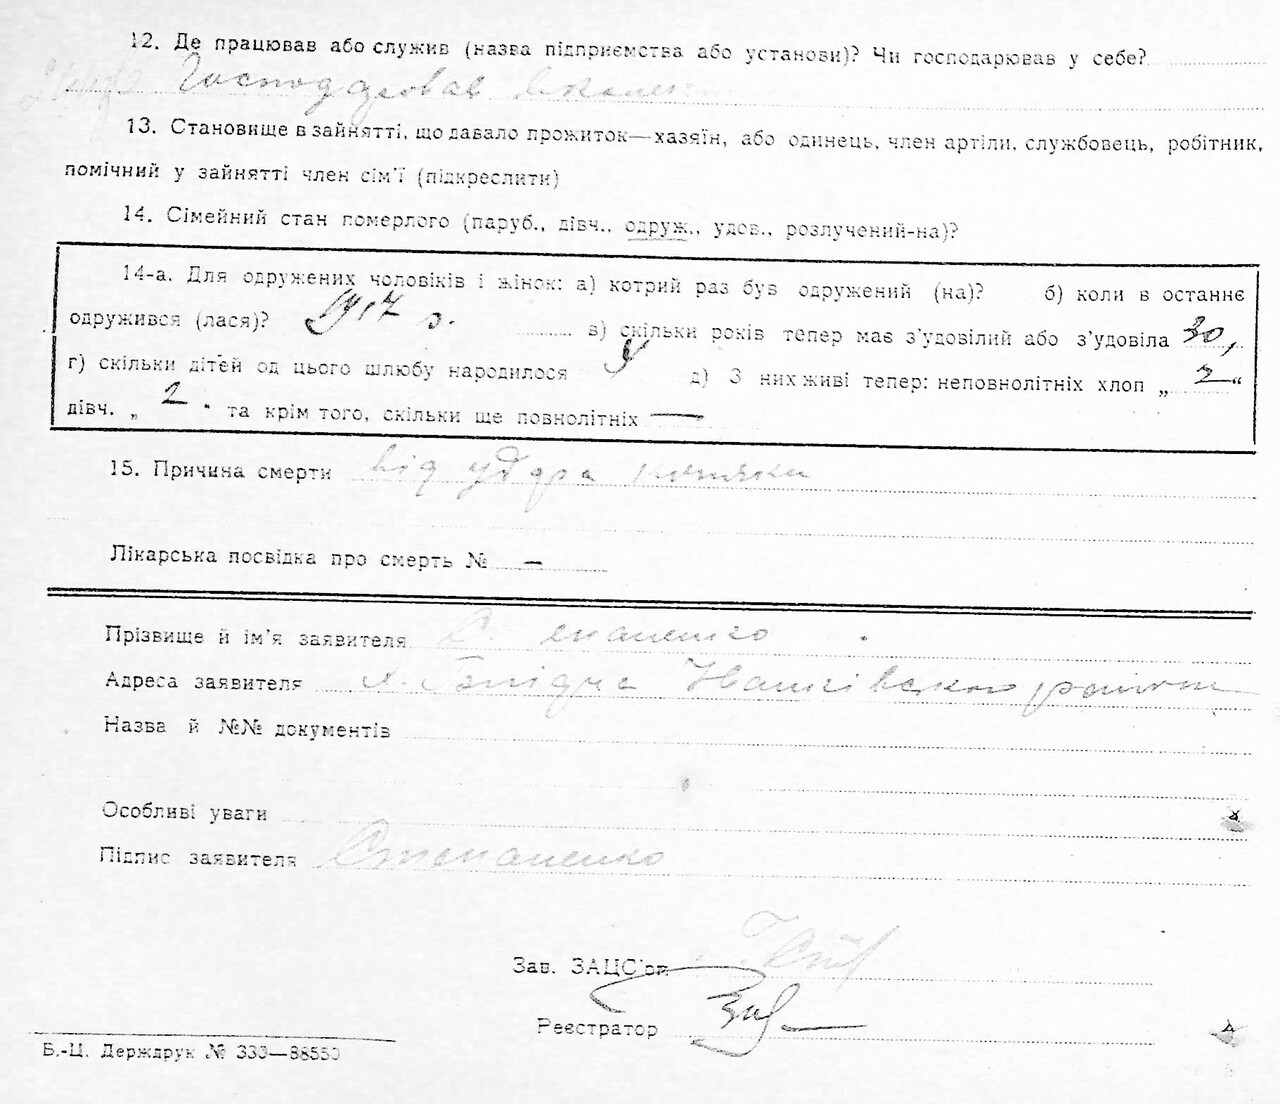 12. Де працював або служив (назва підприємства або установи)? Чи господарював у себе?
Господарював
13. Становище в зайнятті, що давало прожиток—хазяїн, або одинець, член артіли, службовець, робітник,
помічний у зайнятті член сім'ї (підкреслити)
14. Сімейний стан померлого (паруб., дівч., одруж., удов., розлучений-на)?
14-а. Для одружених чоловіків і жінок: а) котрий раз був одружений (на)? б) коли в останнє
одружився (лася)? 1917 р. в) скільки років тепер має з'удовілий або з'удовіла 30,
г) скільки дітей од цього шлюбу народилося д) З них живі тепер: неповнолітніх хлоп „ 2 “
дівч. „ 2 " та крім того, скільки ще повнолітніх —
15. Причина смерти від удара
Лікарська посвідка про смерть № —
Прізвище й ім'я заявителя Степаненко
Адреса заявителя Іванківского району
Назва й №№ документів
Особливі уваги
Підпис заявителя Степаненко
Зав. ЗАЦС'ом
Реєстратор
Б.-Ц. Держдрук № 333—88550